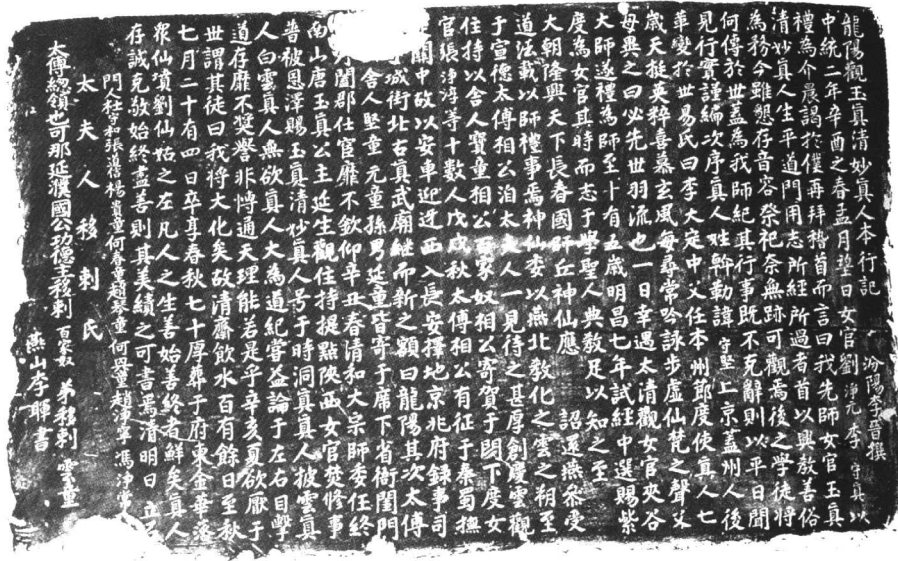 龍陽觀玉真清妙真人本行記
汾陽李晉撰
中統二年辛酉之春孟月望日女官劉淨元李守真以
禮為介晨謁於僕再拜稽首而言曰我先師女官玉真
清妙真人生平道門用志所經所過者首以興教善俗
為務今雖憩存音容祭祀奈無跡可觀焉後之學徒將
何傳於世蓋為我師紀其行事既不克辭則以平日聞
見行實謹編次序真人姓斡勒諱守堅上京蓋州人後
革變於世易氏曰李大定中父任本州節度使真人七
歲天挺英粹喜慕玄風每尋常吟詠步虛仙梵之聲父
母異之曰必先世羽流也一日幸遇太清觀女官夾谷
大師遂禮為師至十有五歲明昌七年試經中選賜紫
度為女官其時而志于學聖人典教足以知之至
大朝隆興天下長春國師丘神仙應 詔還燕參受
道法載以師禮事焉神仙委以燕北教化之雲之朔至
于宣德太傅相公洎太夫人一見待之甚厚創慶雲觀
住持以舍人寶童相公百家奴相公寄賀于閔下度女
官張淨淳等十數人戊戌秋太傅相公有征于秦蜀撫
關中故以安車迎迓西入長安擇地京兆府錄事司
城街北古真武廟繼而新之額曰龍陽其次太傅
舍人堅童元童孫男延童皆寄于席下省衙閨門
閫郡仕官靡不欽仰辛丑春清和大宗師委任終
南山唐玉真公主延生觀住持提點陝西女官焚修事
普被恩澤賜玉真清妙真人号于時洞真真人披雲真
人白雲真人無欲真人大為道紀嘗益論于左右目擊
道存靡不獎譽非愽通天理能若是乎辛亥夏欲厭于
世謂其徒曰我將大化矣故清齋飲水百有餘日至秋
七月二十有四日卒享春秋七十厚葬于府東金華落
衆仙墳劉仙姑之左凡人之生善始善終者鮮矣真人
存誠克敬始終盡善則其美績之可書焉清明日立
門杜守和張蓮楊貴童何春童趙琴童何丹童趙淨馮淨
太夫人移剌氏
太傅總領也可那延濮國公功德主移剌百家奴弟移剌雲童
燕山李暉書